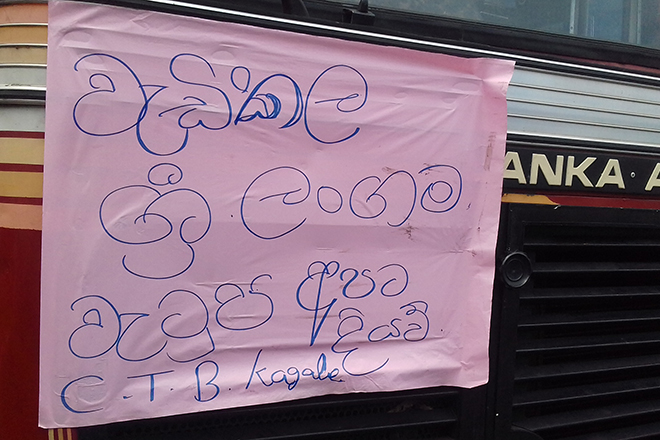 වැඩිකල
ශ්‍රී ලංගම
වැටුප් අපට
දියව්
C.T.B. Kagale
ANKA A